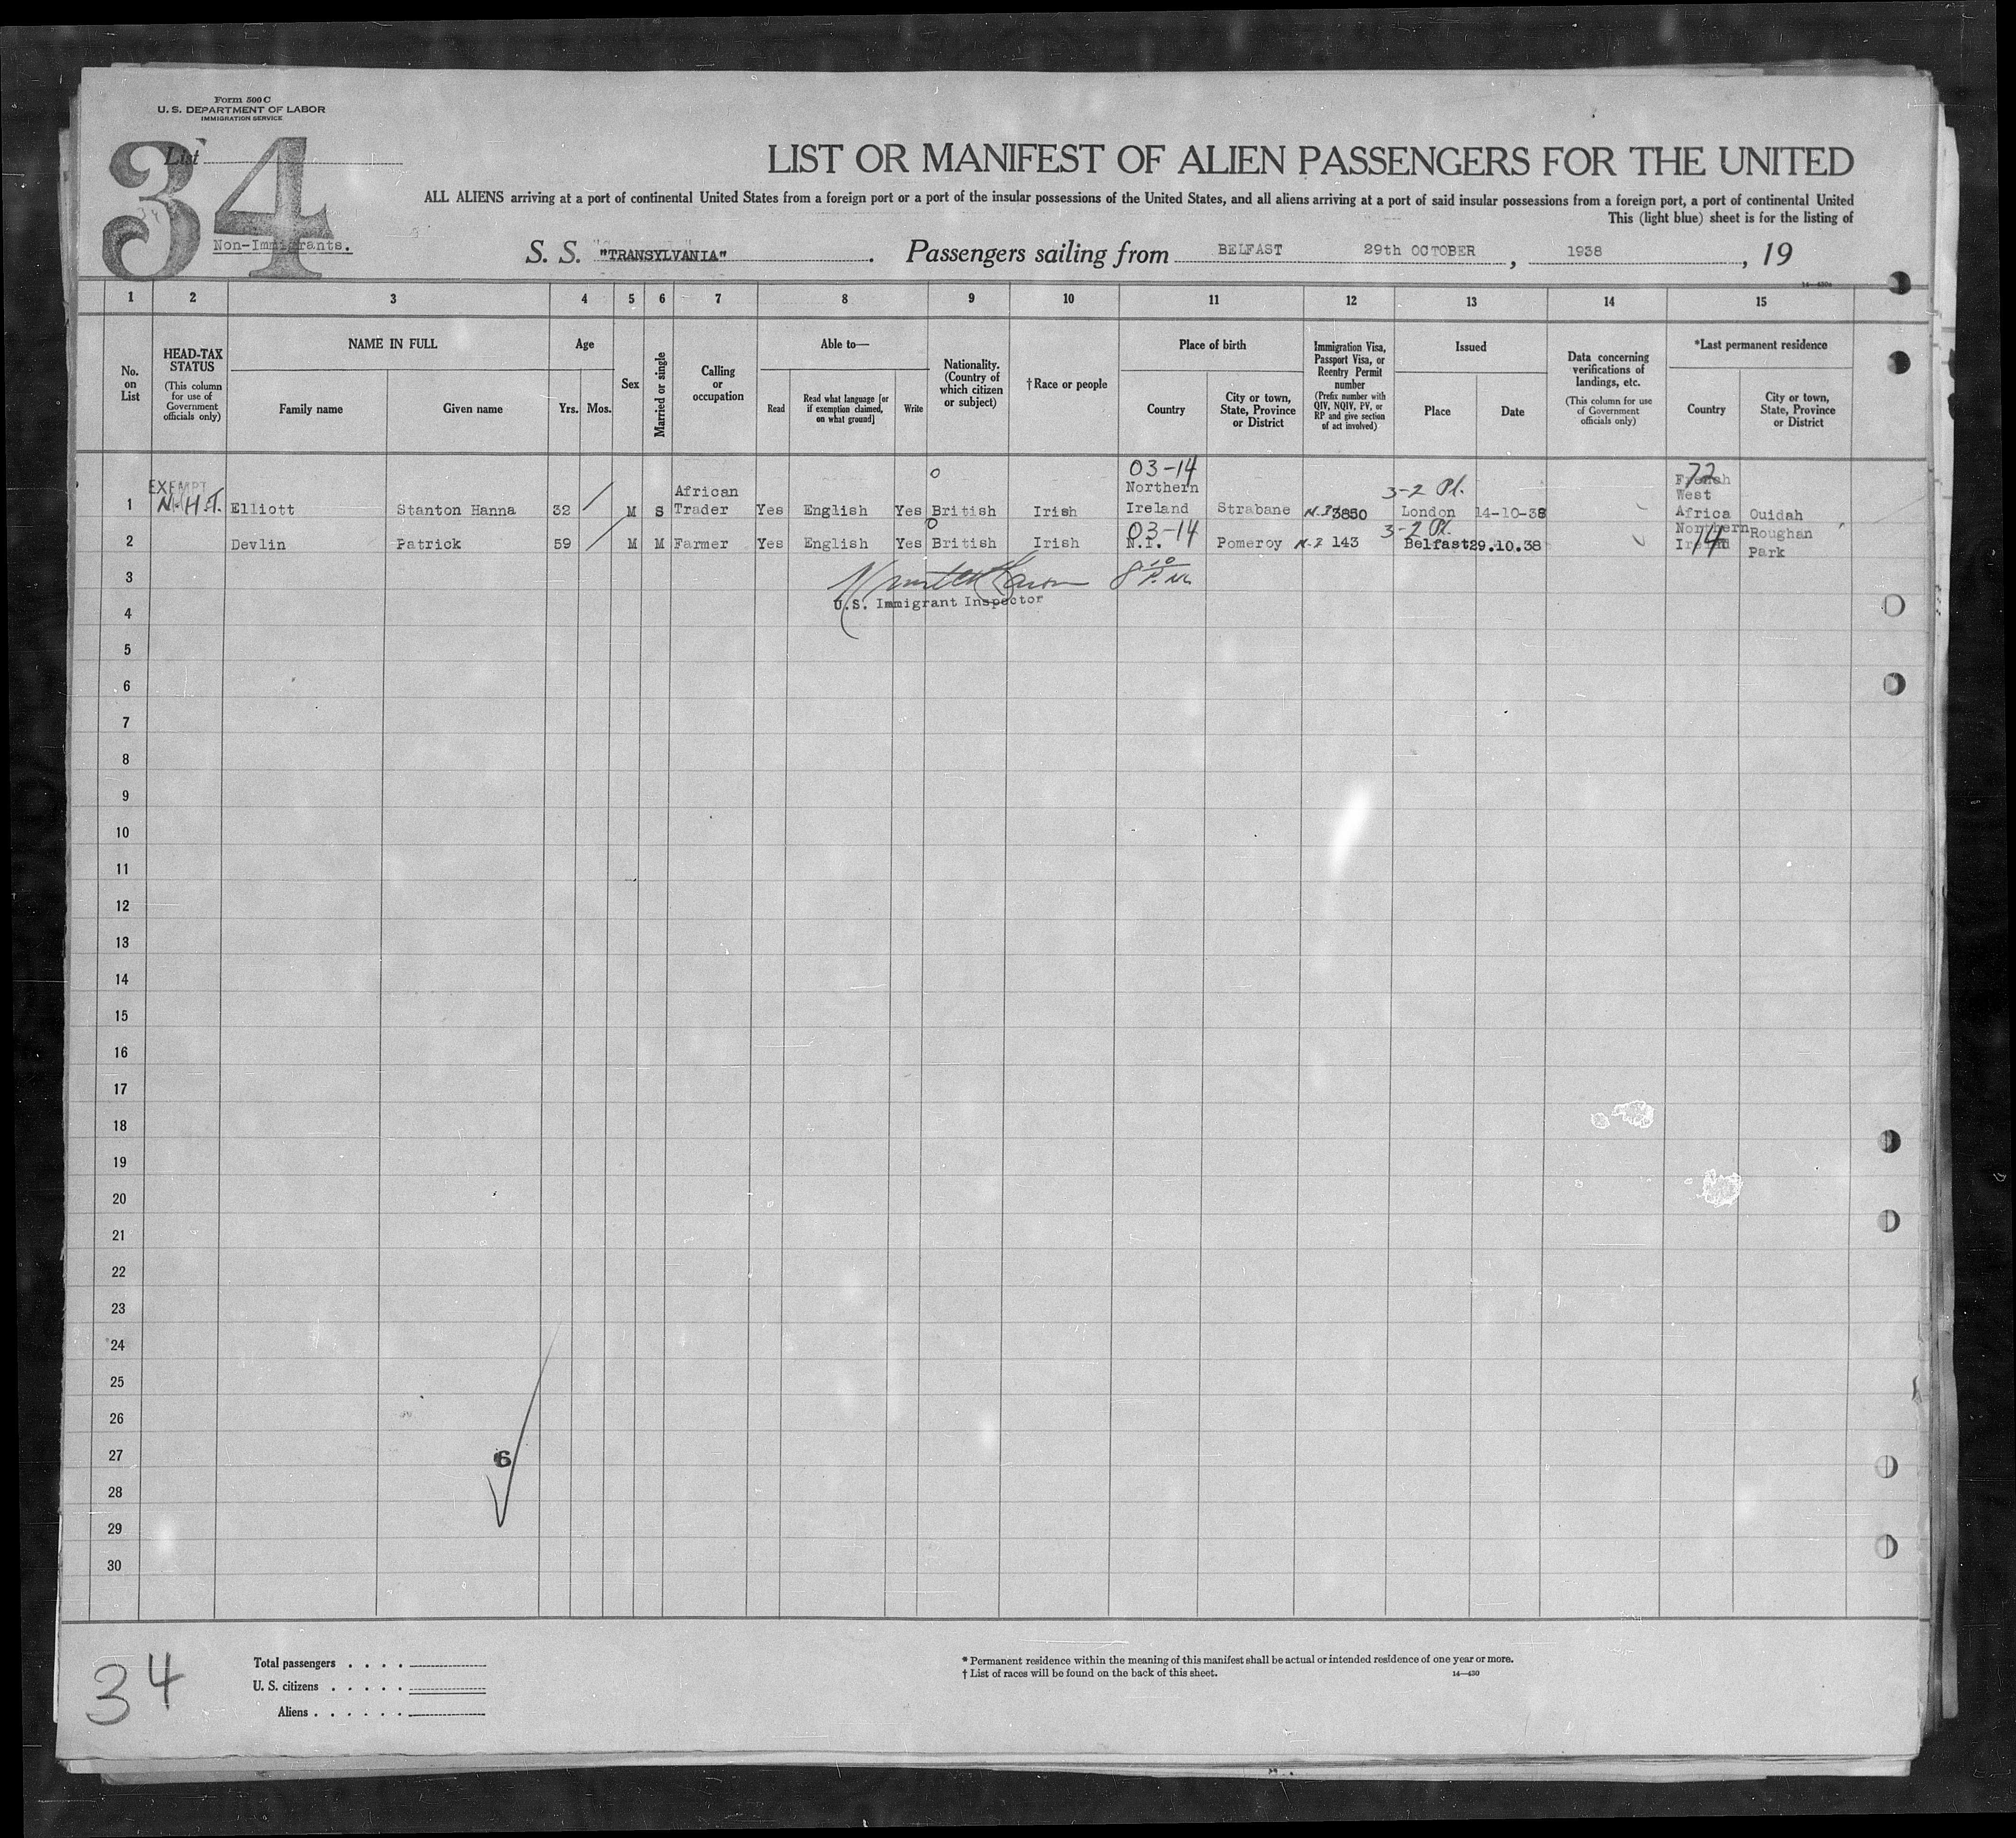 Form 500 C
U. S. DEPARTMENT OF LABOR
IMMIGRATION SERVICE
34
List
Non-Immigrants.
LIST OR MANIFEST OF ALIEN PASSENGERS FOR THE UNITED
ALL ALIENS arriving at a port of continental United States from a foreign port or a port of the insular possessions of the United States, and all aliens arriving at a port of said insular possessions from a foreign port, a port of continental United
This (light blue) sheet is for the listing of
S. S. "TRANSYLVANIA". Passengers sailing from BELFAST 29th OCTOBER, 1938, 19
1 2 3 4 5 6 7 8 9 10 11 12 13 14 15
No. on List
HEAD-TAX STATUS (This column for use of Government officials only)
NAME IN FULL
Family name
Given name
Age
Yrs. Mos.
Sex
Married or single
Calling or occupation
Able to—
Read
Read what language [or if exemption claimed, on what ground]
Write
Nationality. (Country of which citizen or subject)
†Race or people
Place of birth
Country
City or town, State, Province or District
Immigration Visa, Passport Visa, or Reentry Permit number (Prefix number with QIV, NQIV, PV, or RP and give section of act involved)
Issued
Place
Date
Data concerning verifications of landings, etc. (This column for use of Government officials only)
*Last permanent residence
Country
City or town, State, Province or District
1 EXEMPT N.H.T. Elliott Stanton Hanna 32 M S African Trader Yes English Yes British Irish 03-14 Northern Ireland Strabane 3850 3-2 Pl. London 14-10-38 72 French West Africa Ouidah
2 Devlin Patrick 59 M M Farmer Yes English Yes British Irish 03-14 N.I. Pomeroy 143 3-2 Pl. Belfast 29.10.38 14 Northern Ireland Roughan Park
3
U.S. Immigrant Inspector
4
5
6
7
8
9
10
11
12
13
14
15
16
17
18
19
20
21
22
23
24
25
26
27
6
28
29
30
34
Total passengers . . . .
U. S. citizens . . . . .
Aliens . . . . . .
* Permanent residence within the meaning of this manifest shall be actual or intended residence of one year or more.
† List of races will be found on the back of this sheet.
14—430